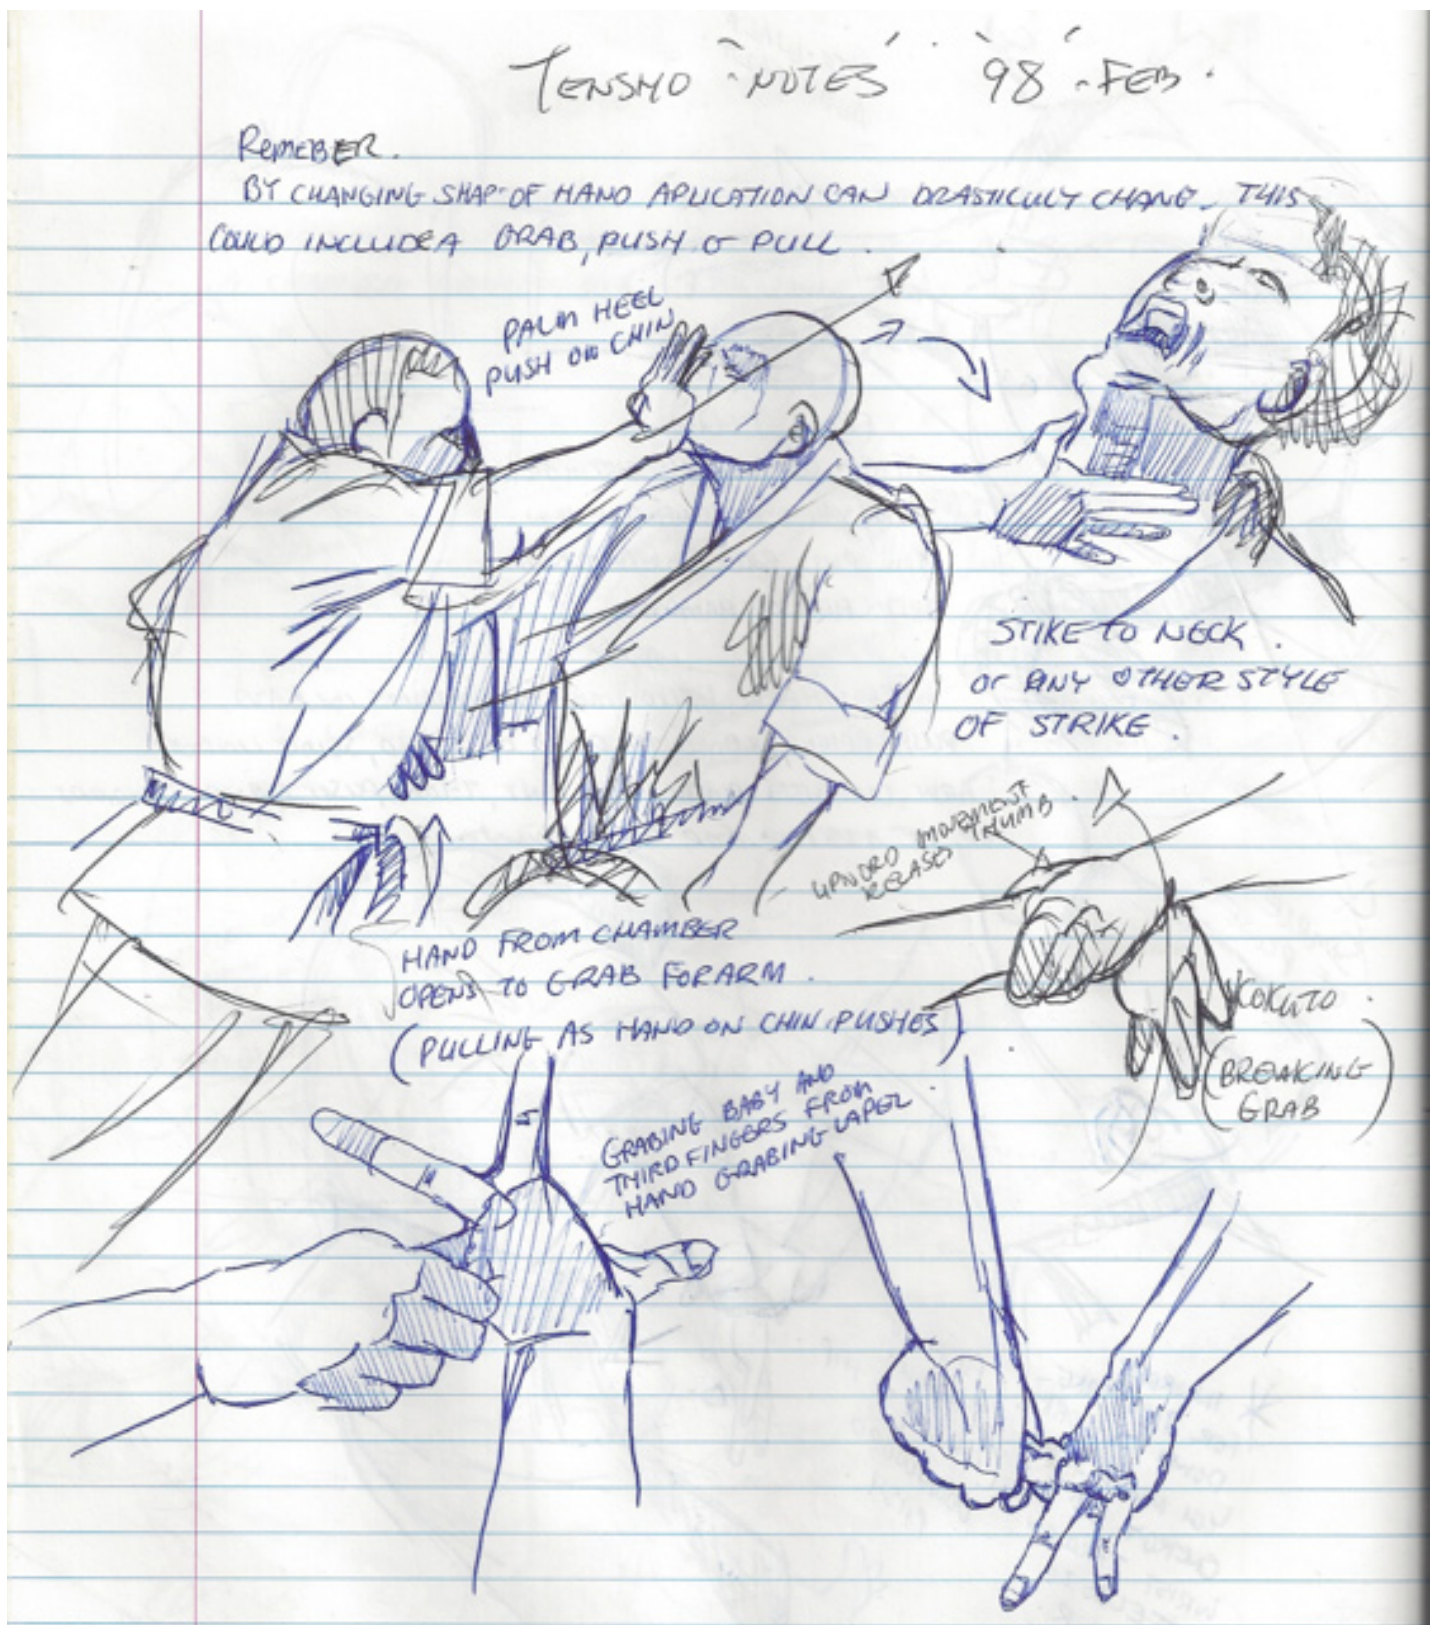 TENSHO NOTES '98 - FEB.
REMEBER.
BY CHANGING SHAP OF HAND APLICATION CAN DRASTICULY CHANE. THIS
COULD INCLUDE A GRAB, PUSH & PULL.
PALM HEEL
PUSH ON CHIN
STIKE TO NECK.
Or ANY OTHER STYLE
OF STRIKE.
UPWORD MOVEMENT
RELEASES THUMB.
HAND FROM CHAMBER
OPENS TO GRAB FORARM.
(PULLING AS HAND ON CHIN PUSHES)
KOKUTO.
(BREAKING
GRAB)
GRABING BABY AND
THIRD FINGERS FROM
HAND GRABING LAPEL.